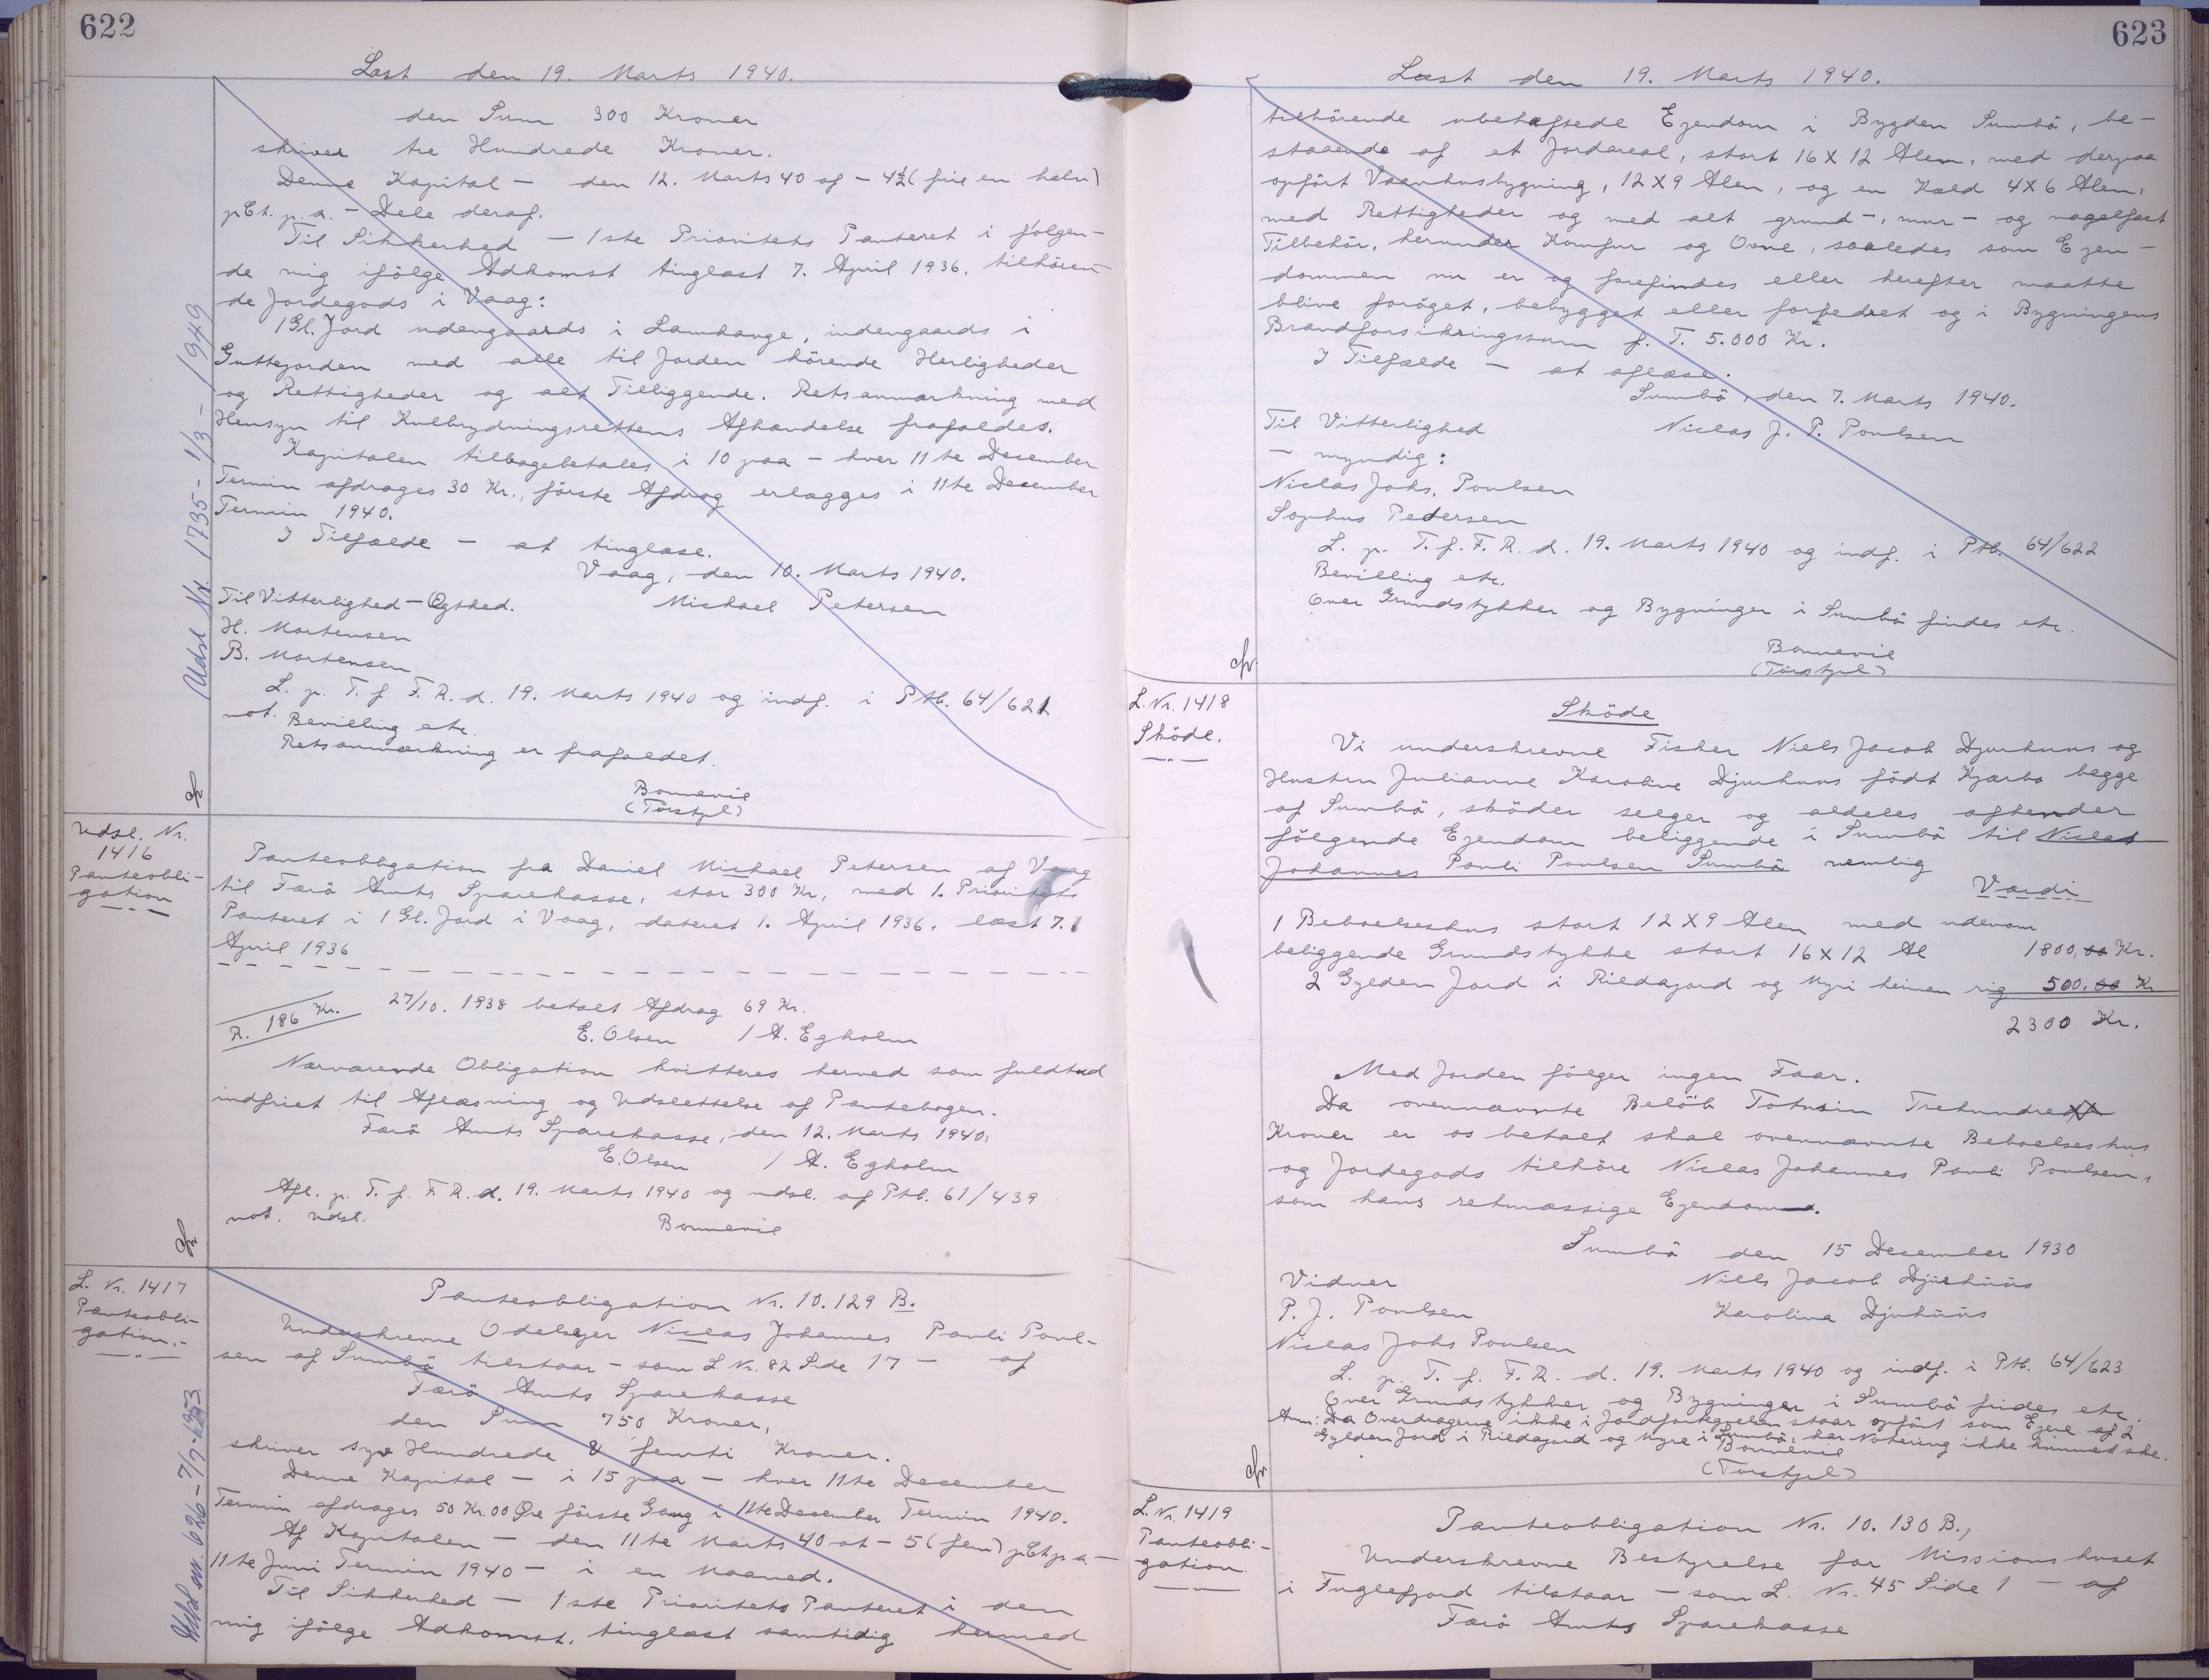 622
Læst den 19. Marts 1940.
den Sum 300 Kroner
skriver tre Hundrede Kroner.
Denne Kapital — den 12. Marts 40 af — 4½ (fire en halv)
pCt. p. a. — Dele deraf.
Til Sikkerhed — 1ste Prioritets Panteret i følgen-
de mig ifølge Adkomst tinglæst 7. April 1936, tilhören-
de Jordegods i Vaag:
1 Gl. Jord udengaards i Lamhauge, indengaards i
Guttejorden med alle til Jorden hörende Herligheder
og Rettigheder og alt Tilliggende. Retsanmærkning med
Hensyn til Kulbrydningsrettens Afhændelse frafaldes.
Kapitalen tilbagebetales i 10 paa — hver 11te December
Termin afdrages 30 Kr., förste Afdrag erlægges i 11te December
Termin 1940.
I Tilfælde — at tinglæse.
Vaag, den 10. Marts 1940.
Til Vitterlighed — Ægthed. Michael Petersen
H. Mortensen
B. Mortensen
L. p. T. f. F. R. d. 19. Marts 1940 og indf. i Ptb. 64/621
not. Bevilling etc.
Retsanmærkning er frafaldet.
Bonnevie
(Törstzul)
Udsl. Nr. 1735 - 1/3 - 1949
Udsl. Nr.
1416
Panteobli-
gation
Panteobligation fra Daniel Michael Petersen af Vaag
til Færö Amts Sparekasse, stor 300 Kr, med 1. Prioritets
Panteret i 1 Gl. Jord i Vaag, dateret 1. April 1936, læst 7.
April 1936
R. 186 Kr. 27/10. 1938 betalt Afdrag 69 Kr.
E. Olsen / A. Egholm
Nærværende Obligation kvitteres herved som fuldtud
indfriet til Aflæsning og Udslettelse af Pantebogen.
Færö Amts Sparekasse, den 12. Marts 1940,
E. Olsen / A. Egholm
Afl. p. T. f. F. R. d. 19. Marts 1940 og udsl. af Ptb. 61/439
not. udsl. Bonnevie
L. Nr. 1417
Panteobli-
gation.
Panteobligation Nr. 10.129 B.
Underskrevne Odelsejer Niclas Johannes Pauli Poul-
sen af Sumbö tilstaar — som L Nr. 82 Side 17 — af
Færö Amts Sparekasse
den Sum 750 Kroner,
skriver syv Hundrede & femti Kroner.
Denne Kapital — i 15 paa — hver 11te December
Termin afdrages 50 Kr. 00 Øre förste Gang i 11te December Termin 1940.
Af Kapitalen — den 11te Marts 40 at — 5 (fem) pCt p. a. —
11te Juni Termin 1940 — i en Maaned.
Til Sikkerhed — 1ste Prioritets Panteret i den
mig ifölge Adkomst, tinglæst samtidig hermed
Udsl. nr. 626 - 7/7 - 1953
623
Læst den 19. Marts 1940.
tilhörende ubehæftede Ejendom i Bygden Sumbö, be-
staaende af et Jordareal, stort 16 X 12 Alen, med derpaa
opfört Vaanhusbygning, 12 X 9 Alen, og en Kæld 4 X 6 Alen,
med Rettigheder og med alt grund-, mur- og nagelfast
Tilbehör, herunder Komfur og Ovne, saaledes som Ejen-
dommen nu er og forefindes eller herefter maatte
blive foröget, bebygget eller forbedret og i Bygningens
Brandforsikringssum p. T. 5.000 Kr.
I Tilfælde — at aflæse.
Sumbö, den 7. Marts 1940.
Til Vitterlighed Niclas J. P. Poulsen
— myndig:
Niclas Johs. Poulsen
Sophus Pedersen
L. p. T. f. F. R. d. 19. Marts 1940 og indf. i Ptb. 64/622
Bevilling etc.
Over Grundstykker og Bygninger i Sumbö findes etc.
Bonnevie
(Törstzul)
L. Nr. 1418
Sköde.
Sköde
Vi underskrevne Fisker Niels Jacob Djurhuus og
Hustru Julianne Karoline Djurhuus födt Kjærbo begge
af Sumbö, sköder sælger og aldeles afhender
fölgende Ejendom beliggende i Sumbö til Niclas
Johannes Pauli Poulsen Sumbö nemlig
Værdi
1 Beboelseshus stort 12 X 9 Alen med udenom
beliggende Grundstykke stort 16 X 12 Al 1800,00 Kr.
2 Gylden Jord i Rildajord og Myri heiman rig 500,00 Kr
2300 Kr.
Med Jorden fölger ingen Faar.
Da ovennævnte Belöb Totusin Trehundrede
Kroner er os betalt skal ovennævnte Beboelseshus
og Jordegods tilhöre Niclas Johannes Pauli Poulsen,
som hans retmæssige Ejendom.
Sumbö den 15 December 1930
Vidner Niels Jacob Djúrhüüs
P. J. Poulsen Karolina Djurhüüs
Niclas Johs Poulsen
L. p. T. f. F. R. d. 19. Marts 1940 og indf. i Ptb. 64/623
Over Grundstykker og Bygninger i Sumbö findes etc.
Anm: Da Overdragerne ikke i Jordfortegnelsen staar opfört som Ejere af 2
Gylden Jord i Rildajord og Myre i Sumbö, har Notering ikke kunnet ske.
Bonnevie
(Törstzul)
L. Nr. 1419
Panteobli-
gation.
Panteobligation Nr. 10.130 B.,
Underskrevne Bestyrelse for Missionshuset
i Fuglefjord tilstaar — som L. Nr. 45 Side 1 — af
Færö Amts Sparekasse